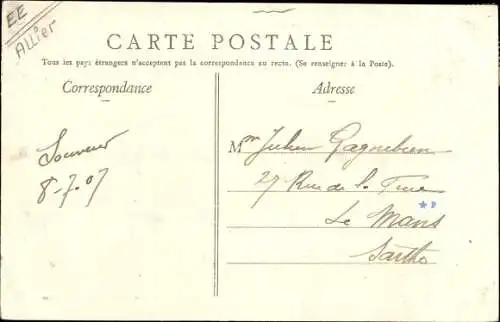 EE
Allier
CARTE POSTALE
Tous les pays étrangers n'acceptent pas la correspondance au recto. (Se renseigner à la Poste).
Correspondance
Adresse
Souvenir
8-7.07
Mr Julien Gagnebien
27 Rue de la
Le Mans
Sarthe